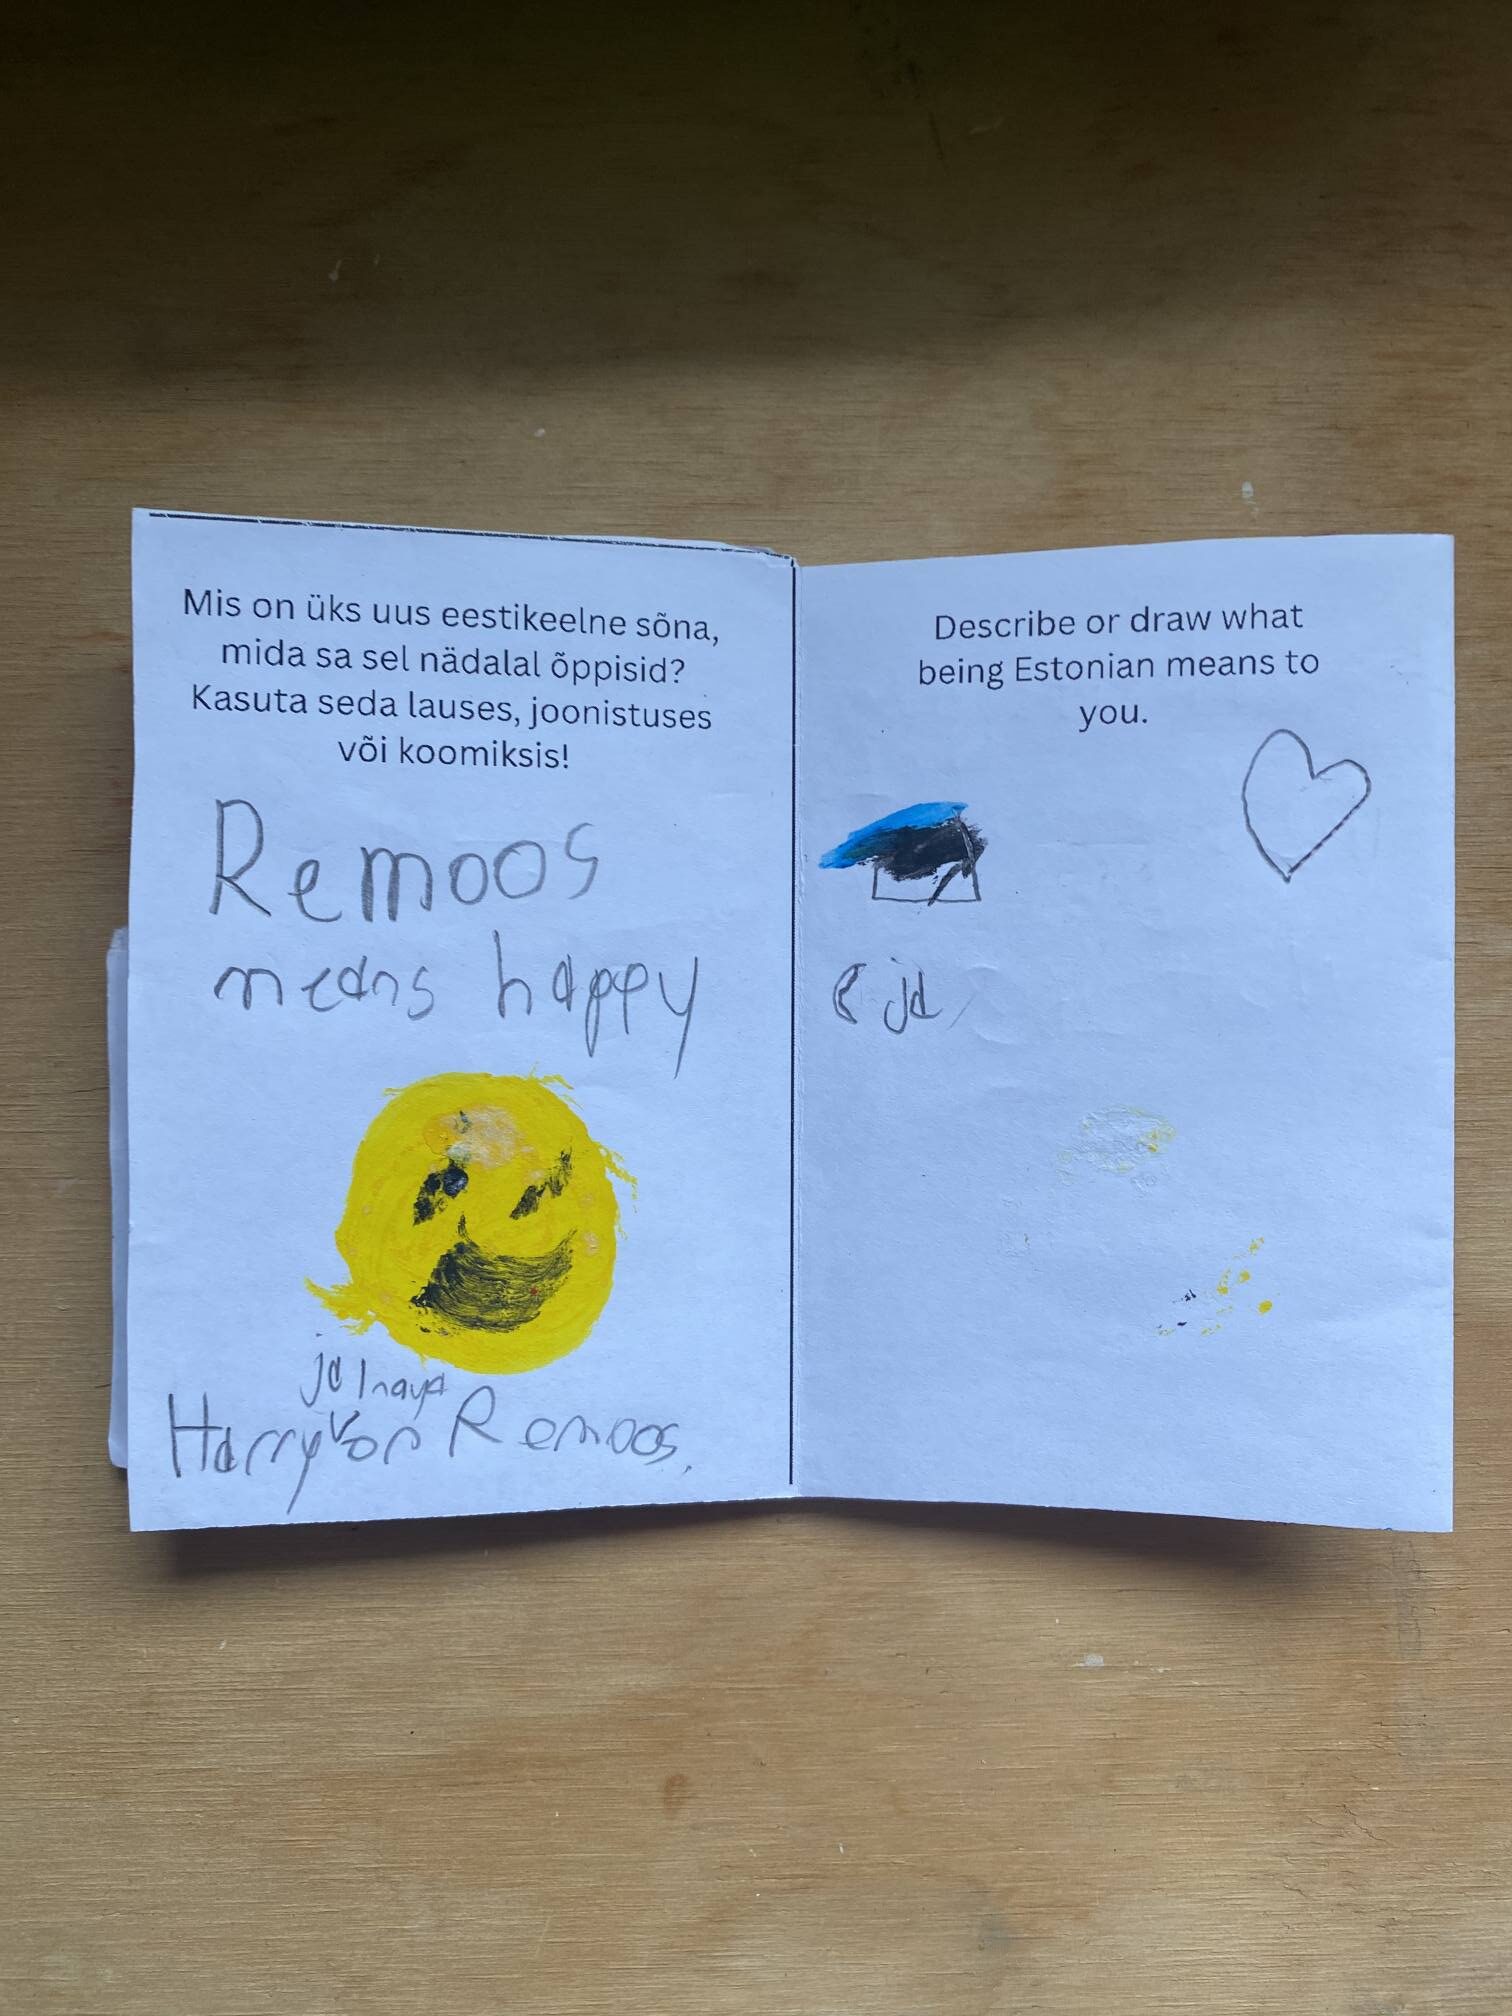 Mis on üks uus eestikeelne sõna,
mida sa sel nädalal õppisid?
Kasuta seda lauses, joonistuses
või koomiksis!
Remoos
means happy
ja Inaya
Harry on Remoos.
Describe or draw what
being Estonian means to
you.
ja